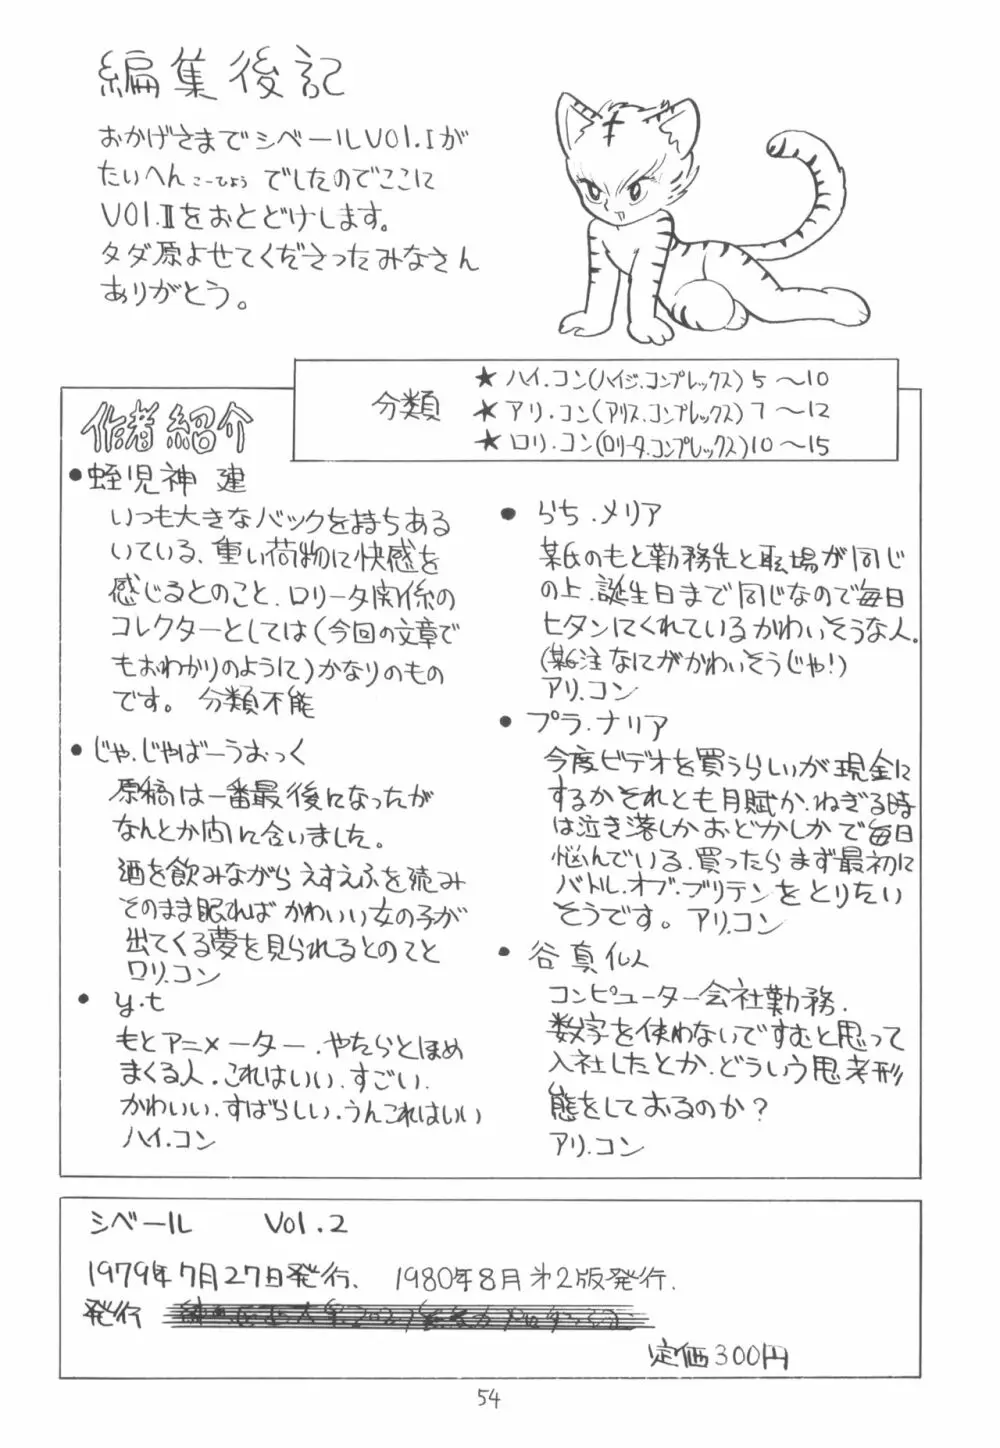 編集後記
おかげさまでシベールVol.Iが
たいへんこーひょうでしたのでここに
VOl.IIをおとどけします。
タダ原よせてくださったみなさん
ありがとう。
分類
★ハイ.コン(ハイジ.コンプレックス)5〜10
★アリ.コン(アリス.コンプレックス)7〜12
★ロリ.コン(ロリータ.コンプレックス)10〜15
作者紹介
●蛭児神 建
いつも大きなバックを持ちある
いている、重い荷物に快感を
感じるとのこと、ロリータ関係の
コレクターとしては(今回の文章で
もおわかりのように)かなりのもの
です。 分類不能
●じゃ.じゃばーうおっく
原稿は一番最後になったが
なんとか間に合いました。
酒を飲みながらえすえふを読み
そのまま眠ればかわいい女の子が
出てくる夢を見られるとのてと
ロリ.コン
●y.t
もとアニメーター.やたらとほめ
まくる人.これはいい.すごい.
かわいい.すばらしい.うんこれはいい
ハイ.コン
●らち.メリア
某氏のもと勤務先と職場が同じ
の上.誕生日まで同じなので毎日
ヒタンにくれているかわいそうな人。
(某注なにがかわいそうじゃ!)
アリ.コン
●プラ.ナリア
今度ビデオを買うらしいが現金に
するかそれとも月賦か.ねぎる時
は泣き落しかおどかしかで毎日
悩んでいる.買ったらまず最初に
バトル.オブ.ブリテンをとりたい
そうです。アリ.コン
●谷真仙人
コンピューター会社勤務.
数字を使わないですむと思って
入社したとか.どういう思考形
態をしておるのか?
アリ.コン
シベール Vol.2
1979年7月27日発行、1980年8月オ2版発行.
発行
定価300円
54